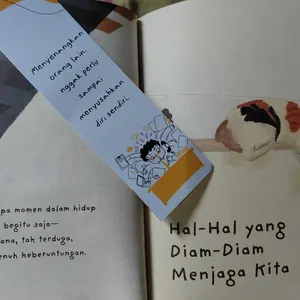 Menyenangkan
orang lain,
nggak perlu
sampai
menyusahkan
diri sendiri.
pa momen dalam hidup
begitu saja—
ana, tak terduga,
enuh keberuntungan.
Hal-Hal yang
Diam-Diam
Menjaga Kita